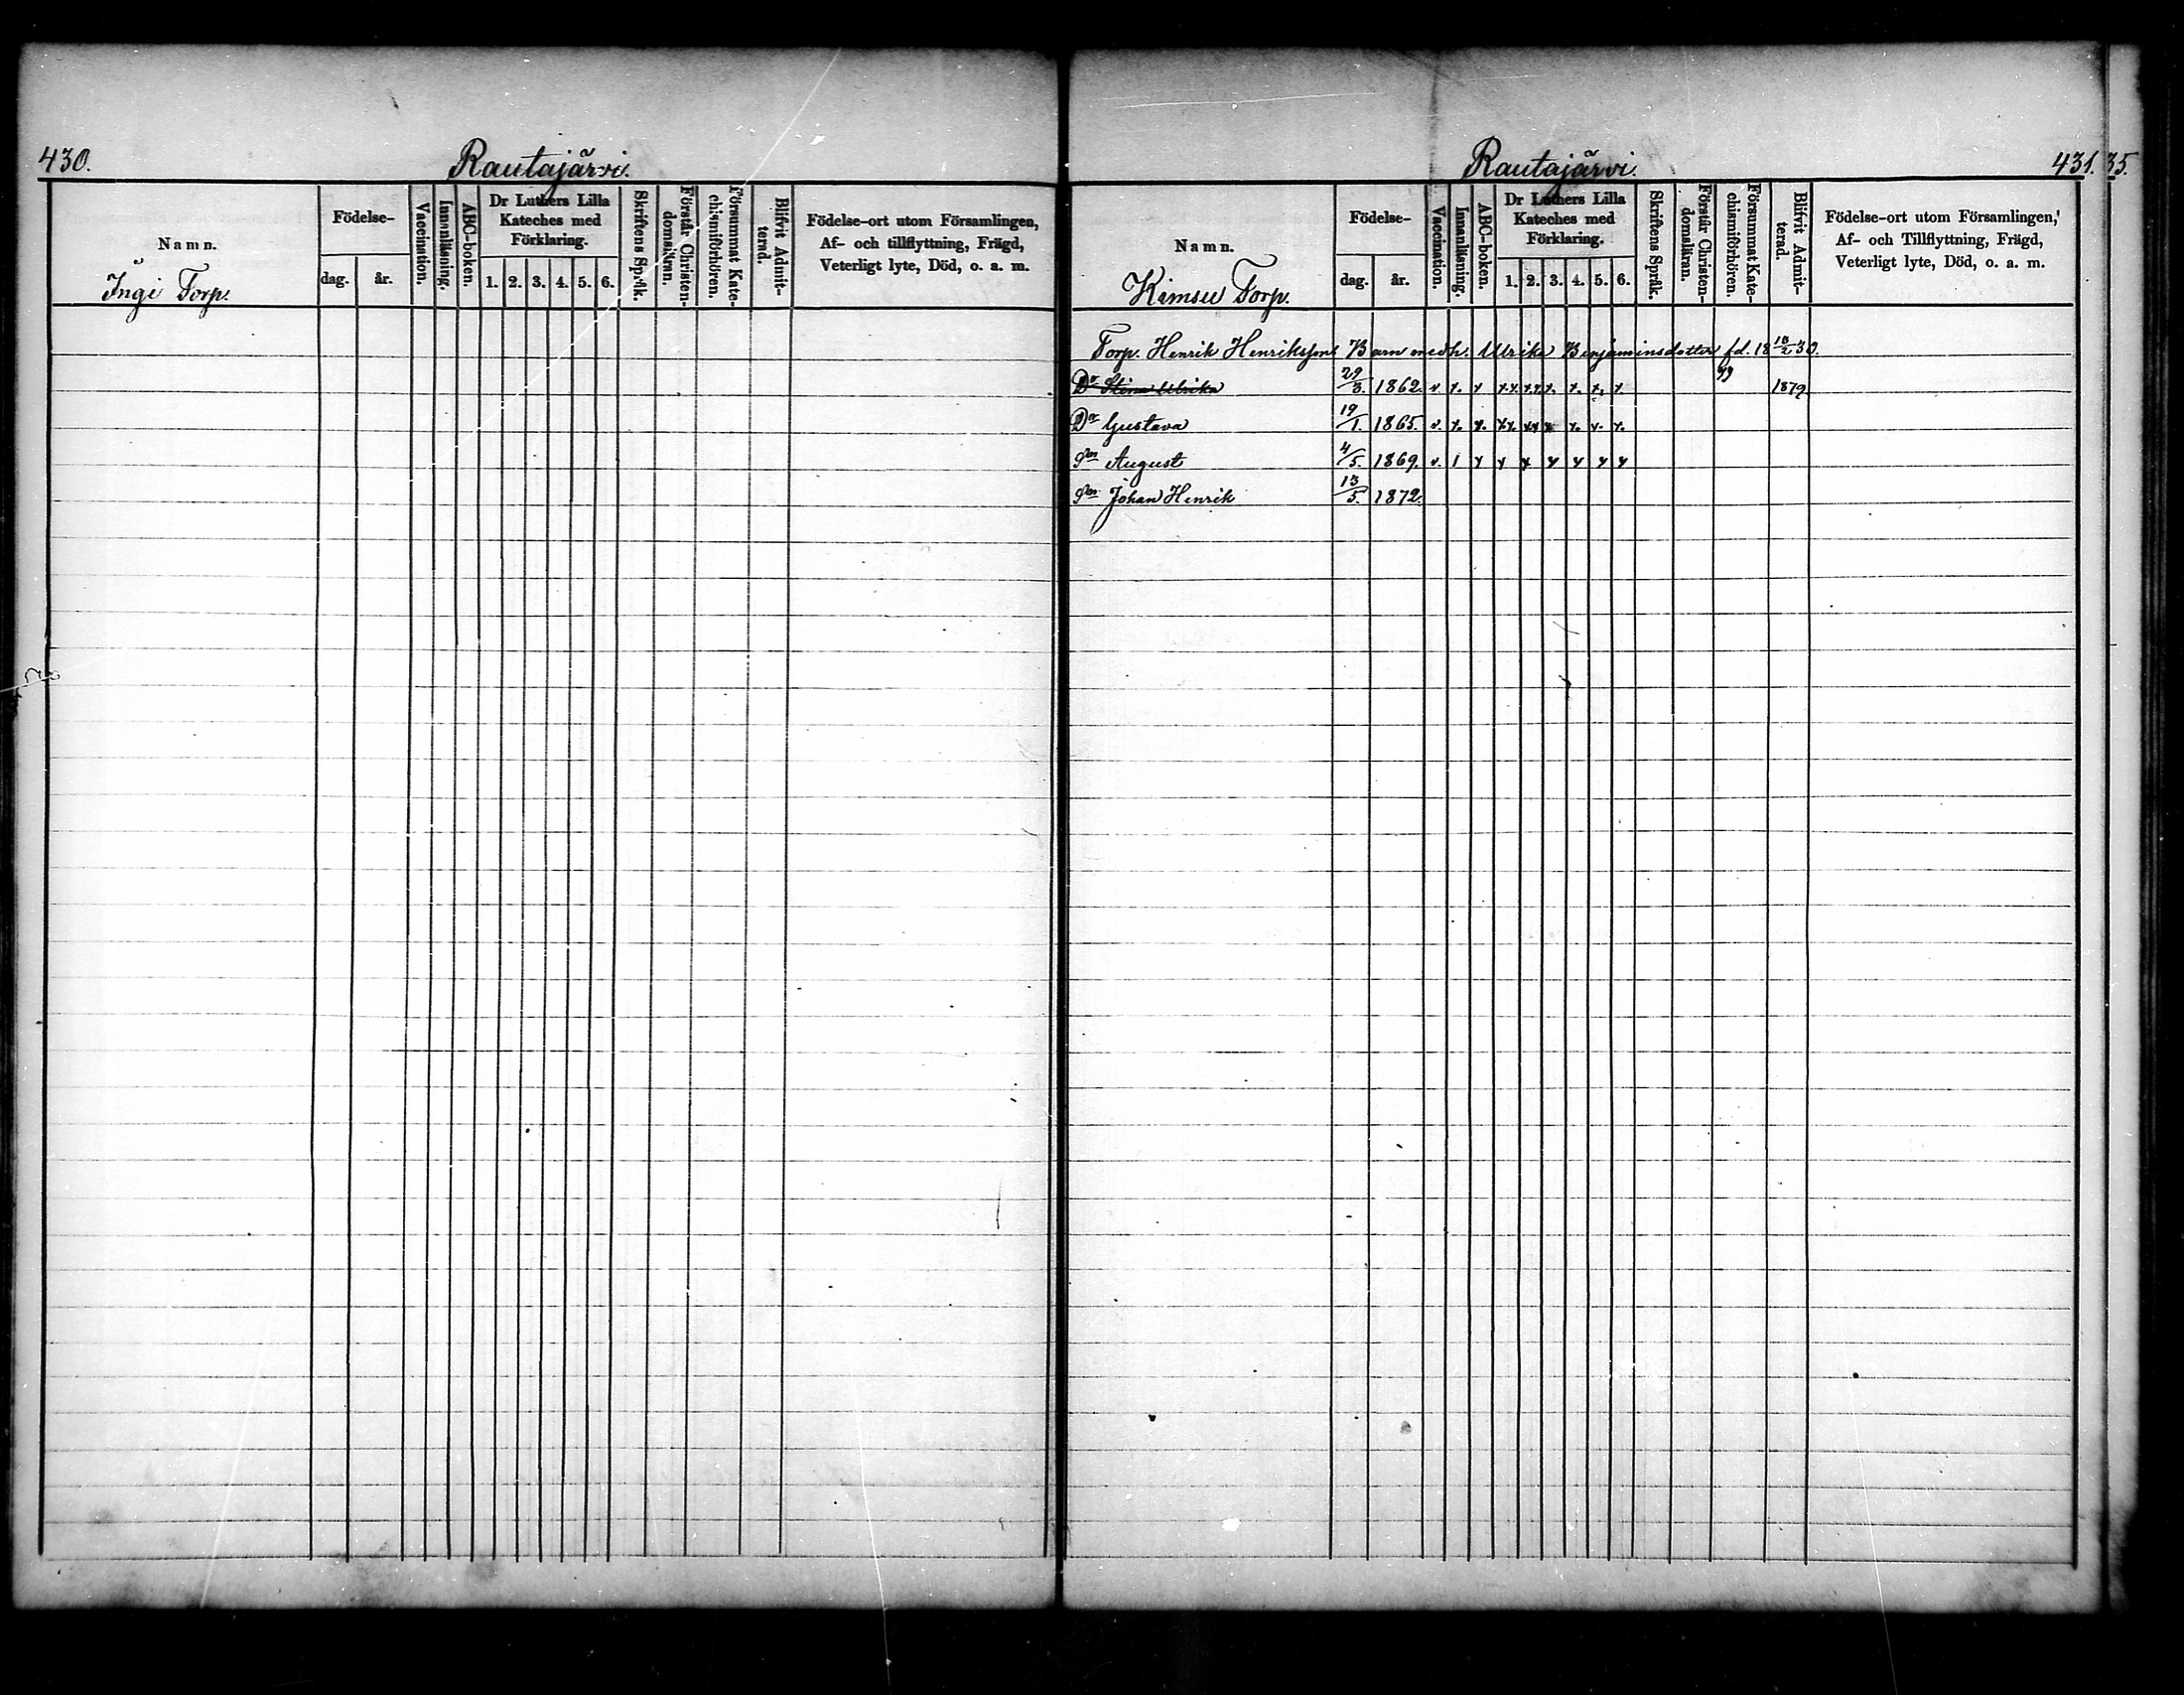 430.
Rautajärvi.
Namn.
Ingi Torp.
Födelse-
dag. år.
Vaccination.
Innanläsning.
ABC-boken.
Dr Luthers Lilla
Kateches med
Förklaring.
1. 2. 3. 4. 5. 6.
Skriftens Språk.
Förstår Christen-
domsläran.
Försummat Kate-
chismiförhören.
Blifvit Admit-
terad.
Födelse-ort utom Församlingen,
Af- och tillflyttning, Frägd,
Veterligt lyte, Död, o. a. m.
Rautajärvi.
431. 35.
Namn.
Kimsu Torp.
Födelse-
dag. år.
Vaccination.
Innanläsning.
ABC-boken.
Dr Luthers Lilla
Kateches med
Förklaring.
1. 2. 3. 4. 5. 6.
Skriftens Språk.
Förstår Christen-
domsläran.
Försummat Kate-
chismiförhören.
Blifvit Admit-
terad.
Födelse-ort utom Församlingen,
Af- och Tillflyttning, Frägd,
Veterligt lyte, Död, o. a. m.
Torp. Henrik Henrikssons Barn med h. Ulrika Benjaminsdotter fd. 18 18/2 30.
Dr Stina Ulrika 29/3. 1862. 1879
Dr Gustava 19/1. 1865.
Sn August 4/5. 1869.
Sn Johan Henrik 13/5. 1872.